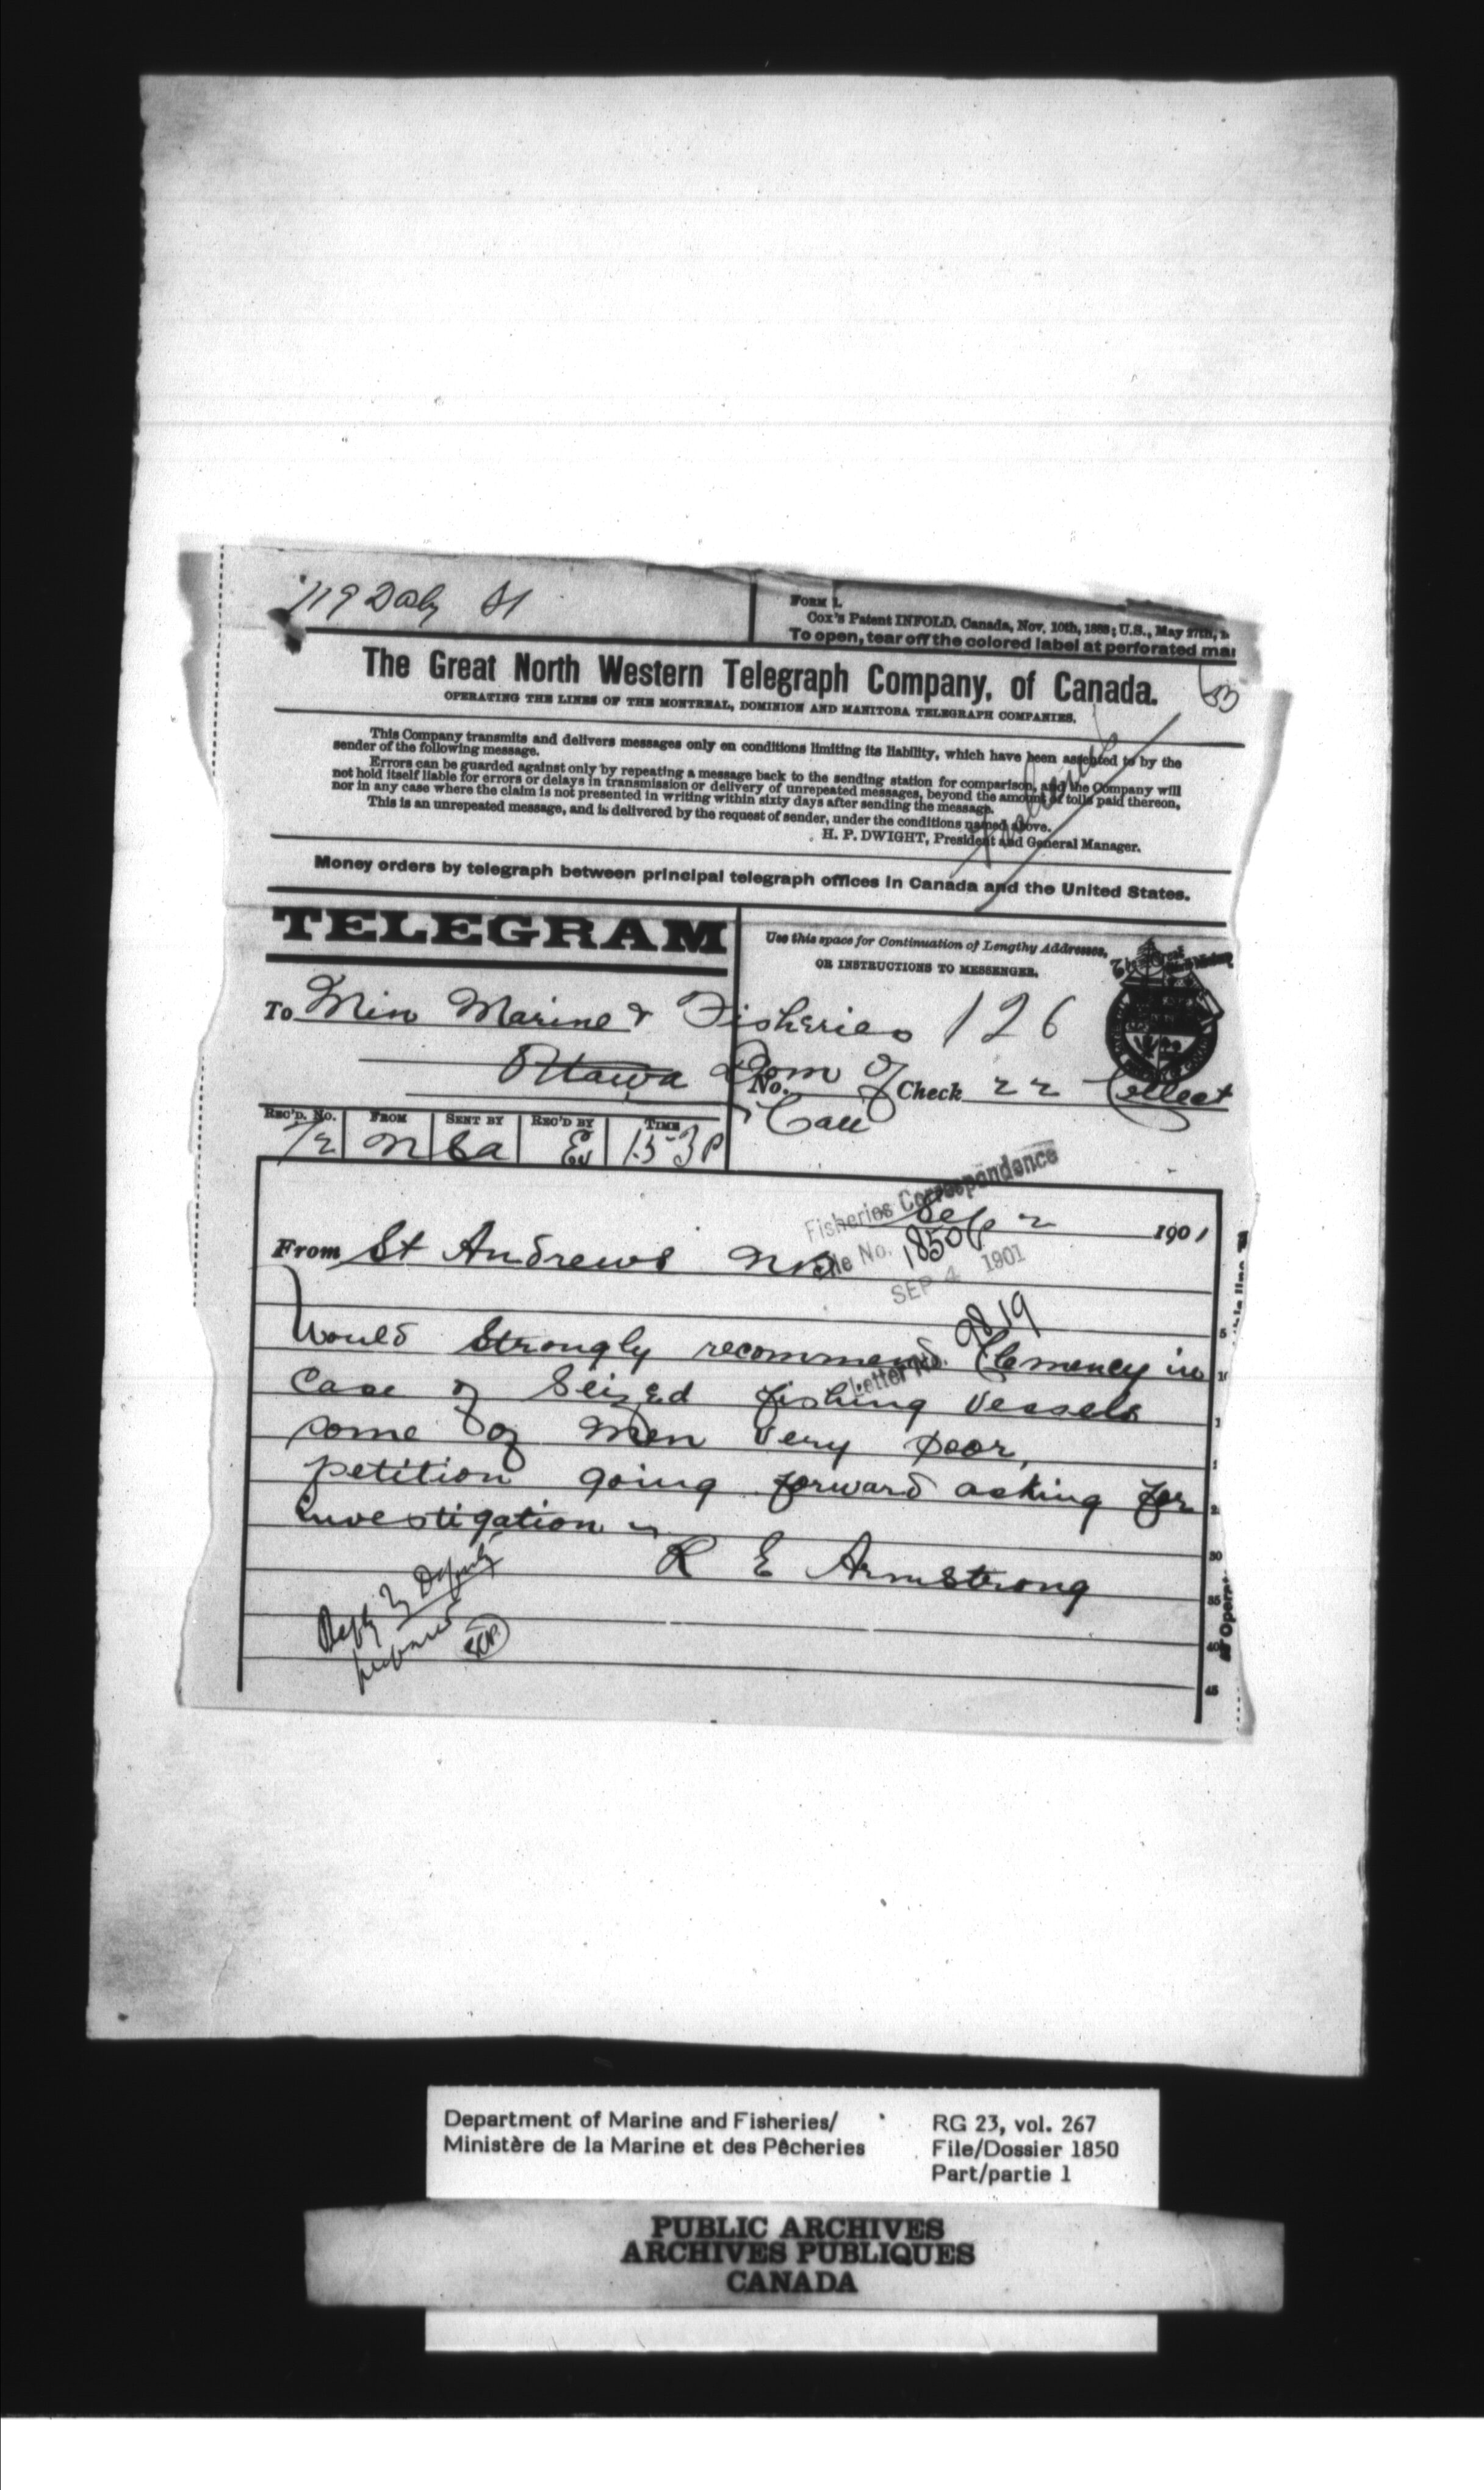 119 Daly St
FORM 1.
Cox's Patent INFOLD. Canada, Nov. 10th, 1888; U.S., May 27th,
To open, tear off the colored label at perforated mar
The Great North Western Telegraph Company, of Canada.
OPERATING THE LINES OF THE MONTREAL, DOMINION AND MANITOBA TELEGRAPH COMPANIES.
This Company transmits and delivers messages only on conditions limiting its liability, which have been assented to by the
sender of the following message.
Errors can be guarded against only by repeating a message back to the sending station for comparison, and the Company will
not hold itself liable for errors or delays in transmission or delivery of unrepeated messages, beyond the amount of tolls paid thereon,
nor in any case where the claim is not presented in writing within sixty days after sending the message.
This is an unrepeated message, and is delivered by the request of sender, under the conditions named above.
H. P. DWIGHT, President and General Manager.
Money orders by telegraph between principal telegraph offices in Canada and the United States.
TELEGRAM
Use this space for Continuation of Lengthy Addresses,
OR INSTRUCTIONS TO MESSENGER.
To Min Marine & Fisheries 126
Ottawa Dom of
No. Check 22 Collect
Can
REC'D. No. FROM SENT BY REC'D BY TIME
72 N Ba Ev 153P
Fisheries Correspondence
Sep 2 1901
From St Andrews NB
File No. 1850
SEP 4 1901
9819
Letter No.
Would Strongly recommend Clemency in
Case of Seized fishing Vessels
some of men very poor,
petition going forward asking for
investigation
R E Armstrong
5
10
1
1
2
30
35
40
45
Reply by Deputy
prepared
Department of Marine and Fisheries/
Ministère de la Marine et des Pêcheries
RG 23, vol. 267
File/Dossier 1850
Part/partie 1
PUBLIC ARCHIVES
ARCHIVES PUBLIQUES
CANADA